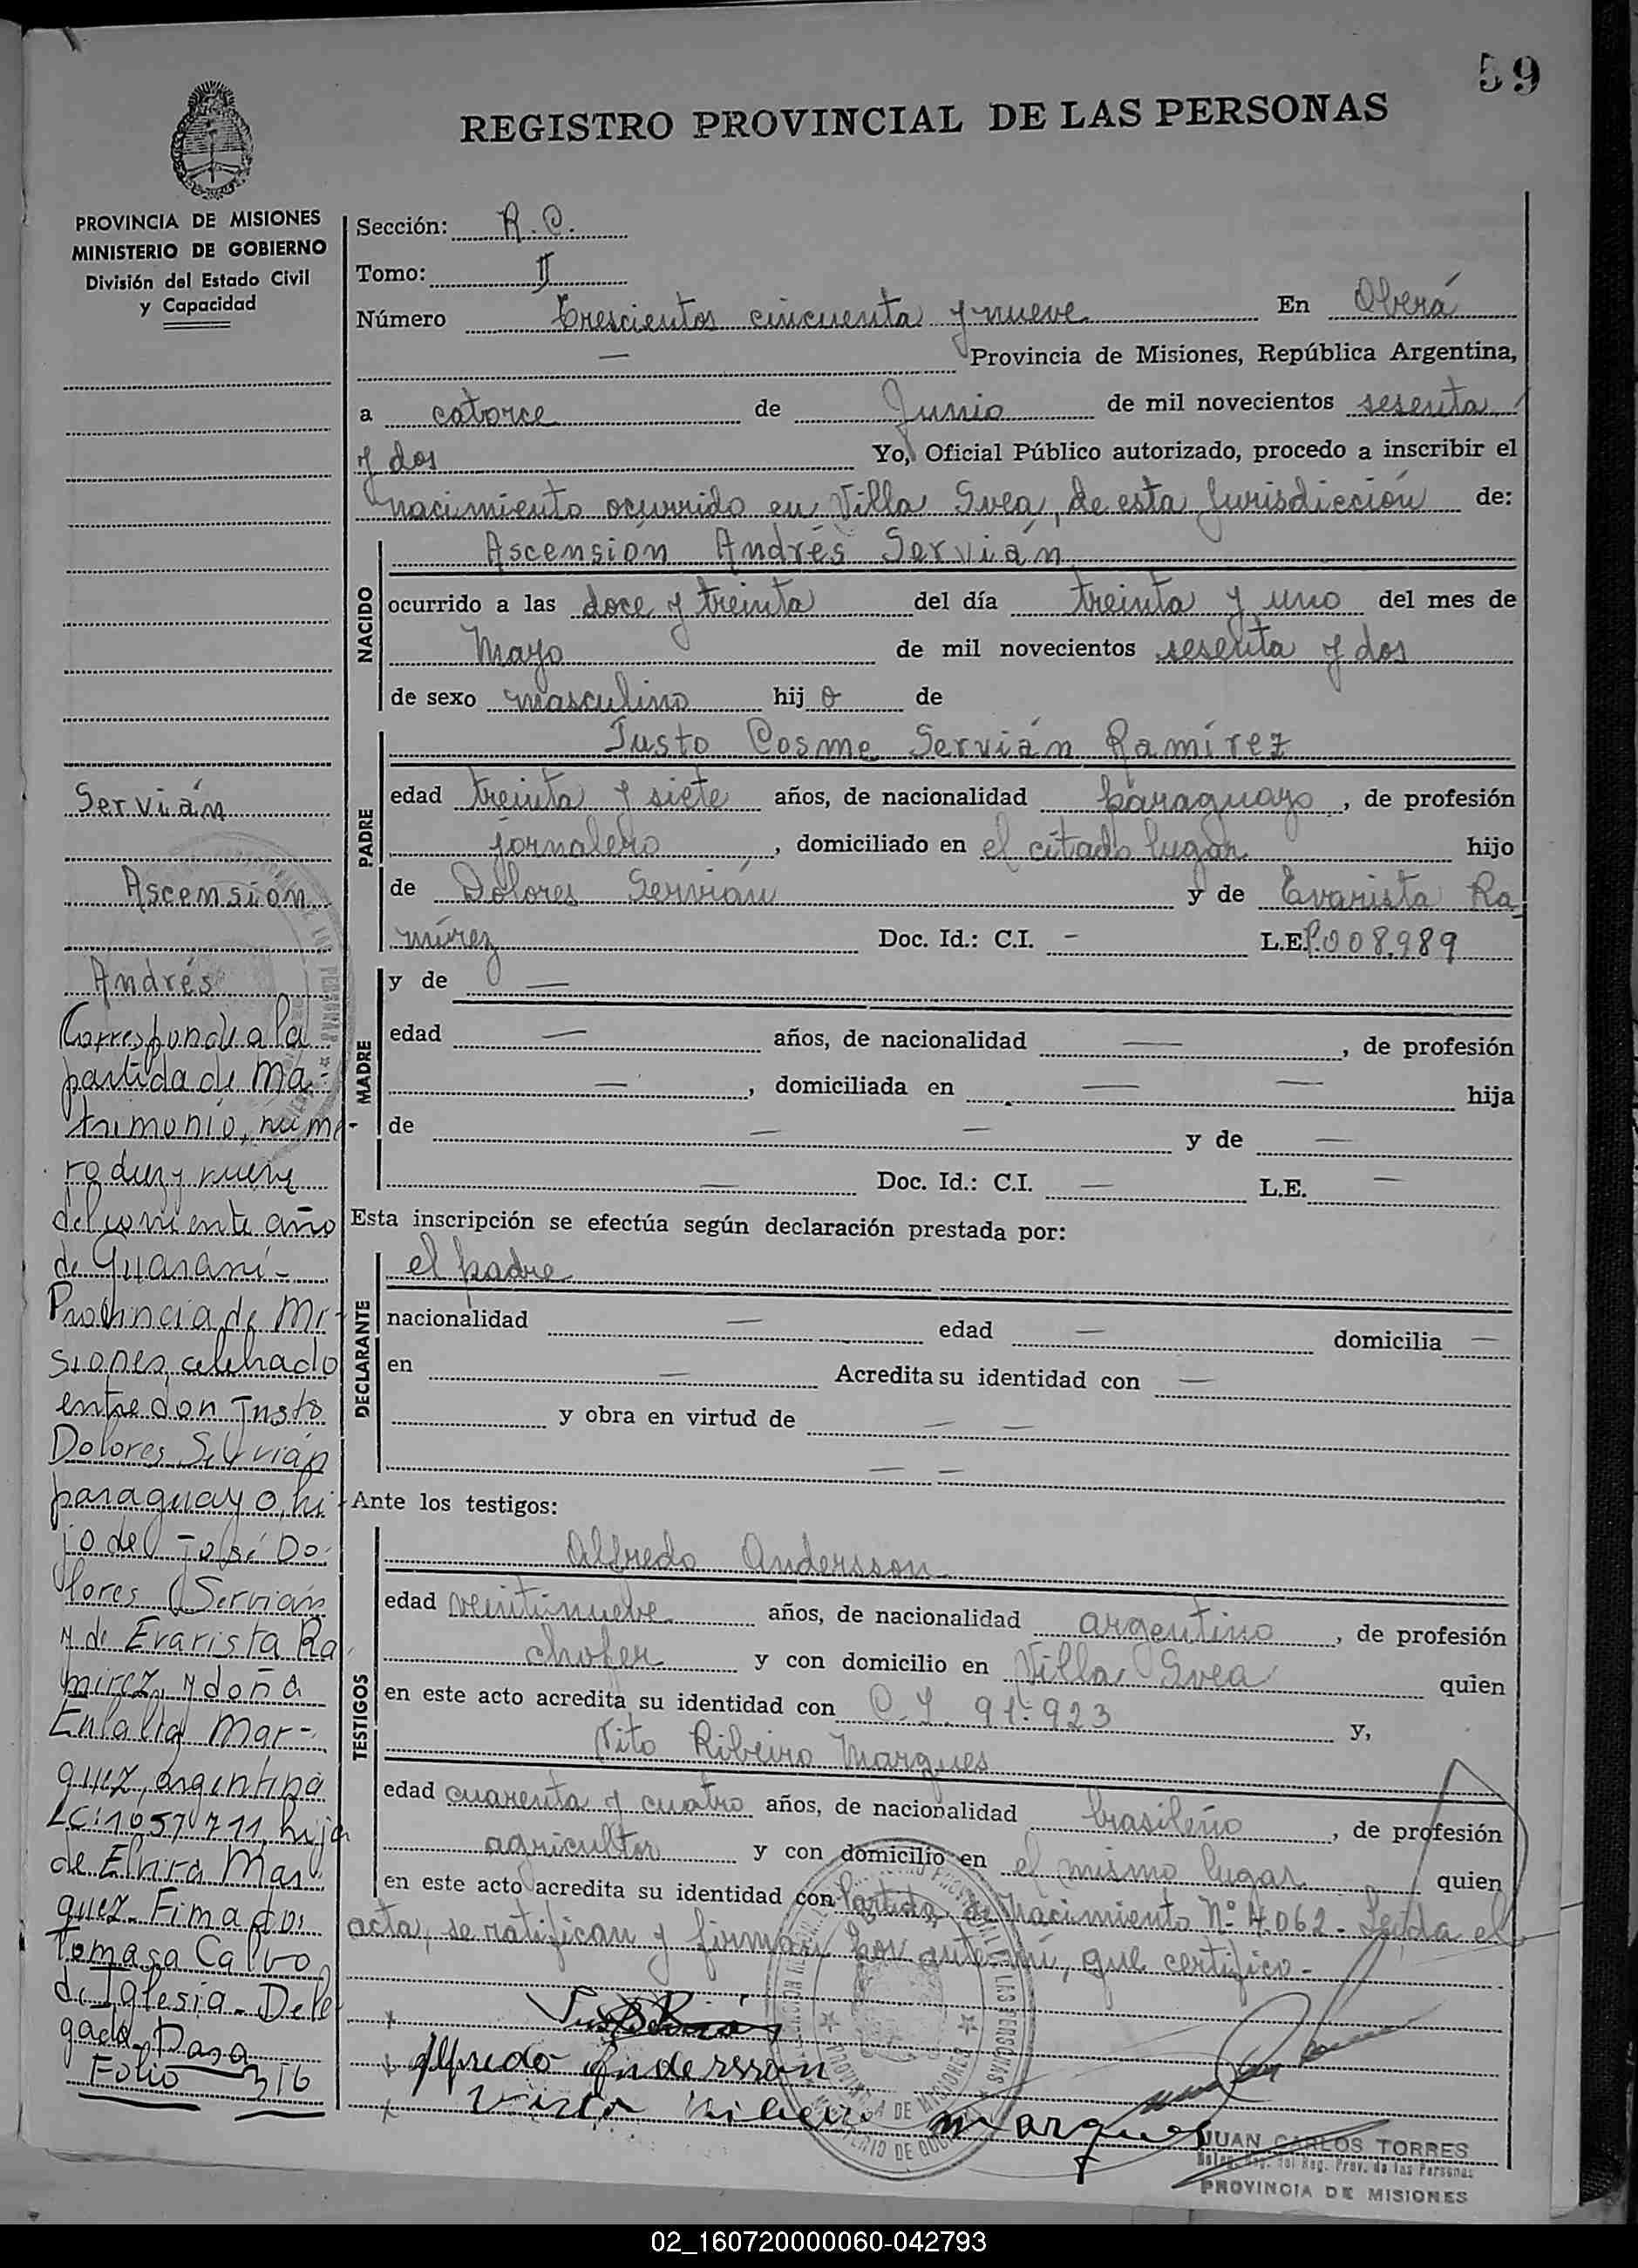 59
REGISTRO PROVINCIAL DE LAS PERSONAS
PROVINCIA DE MISIONES
MINISTERIO DE GOBIERNO
División del Estado Civil
y Capacidad
Servián
Ascensión
Andrés
Corresponde a la
partida de Ma-
trimonio, núme-
ro diez y nueve
del corriente año
de Guaraní-
Provincia de Mi-
siones, celebrado
entre don Justo
Dolores Servián
paraguayo, hi-
jo de José Do-
lores Servián
y de Evarista Ra
mirez, y doña
Eulalia Mar-
quez, argentina
LC: 1057711, hija
de Elvira Mar
quez. Fimados
Tomasa Calvo
de Iglesia - Dele
gada
Folio 316
Sección: R.C.
Tomo: II
Número Trescientos cincuenta y nueve En Oberá
— Provincia de Misiones, República Argentina,
a catorce de Junio de mil novecientos sesenta
y dos Yo, Oficial Público autorizado, procedo a inscribir el
nacimiento ocurrido en Villa Svea, de esta Jurisdicción de:
NACIDO
Ascension Andrés Servián
ocurrido a las doce y treinta del día treinta y uno del mes de
Mayo de mil novecientos sesenta y dos
de sexo masculino hijo de
PADRE
Justo Cosme Servián Ramírez
edad treinta y siete años, de nacionalidad paraguayo, de profesión
jornalero, domiciliado en el citado lugar hijo
de Dolores Servián y de Evarista Ra-
mírez Doc. Id.: C.I. — L.E. P.008.989
MADRE
y de —
edad — años, de nacionalidad —, de profesión
—, domiciliada en — — hija
de — — y de —
— Doc. Id.: C.I. — L.E. —
Esta inscripción se efectúa según declaración prestada por:
DECLARANTE
el padre
nacionalidad — edad — domicilia —
en — Acredita su identidad con —
y obra en virtud de — —
— —
Ante los testigos:
TESTIGOS
Alfredo Andersson
edad veintinueve años, de nacionalidad argentino, de profesión
chofer y con domicilio en Villa Svea quien
en este acto acredita su identidad con C.I. 91.923 y,
Vito Ribeiro Marques
edad cuarenta y cuatro años, de nacionalidad brasileño, de profesión
agricultor y con domicilio en el mismo lugar quien
en este acto acredita su identidad con Partida de Nacimiento Nº 4.062- Leida el
acta, se ratifican y firman por ante mí, que certifico-
Alfredo Andersson
Vito Ribeiro Marques
JUAN CARLOS TORRES
Reg. Prov. de las Personas
PROVINCIA DE MISIONES
02_160720000060-042793